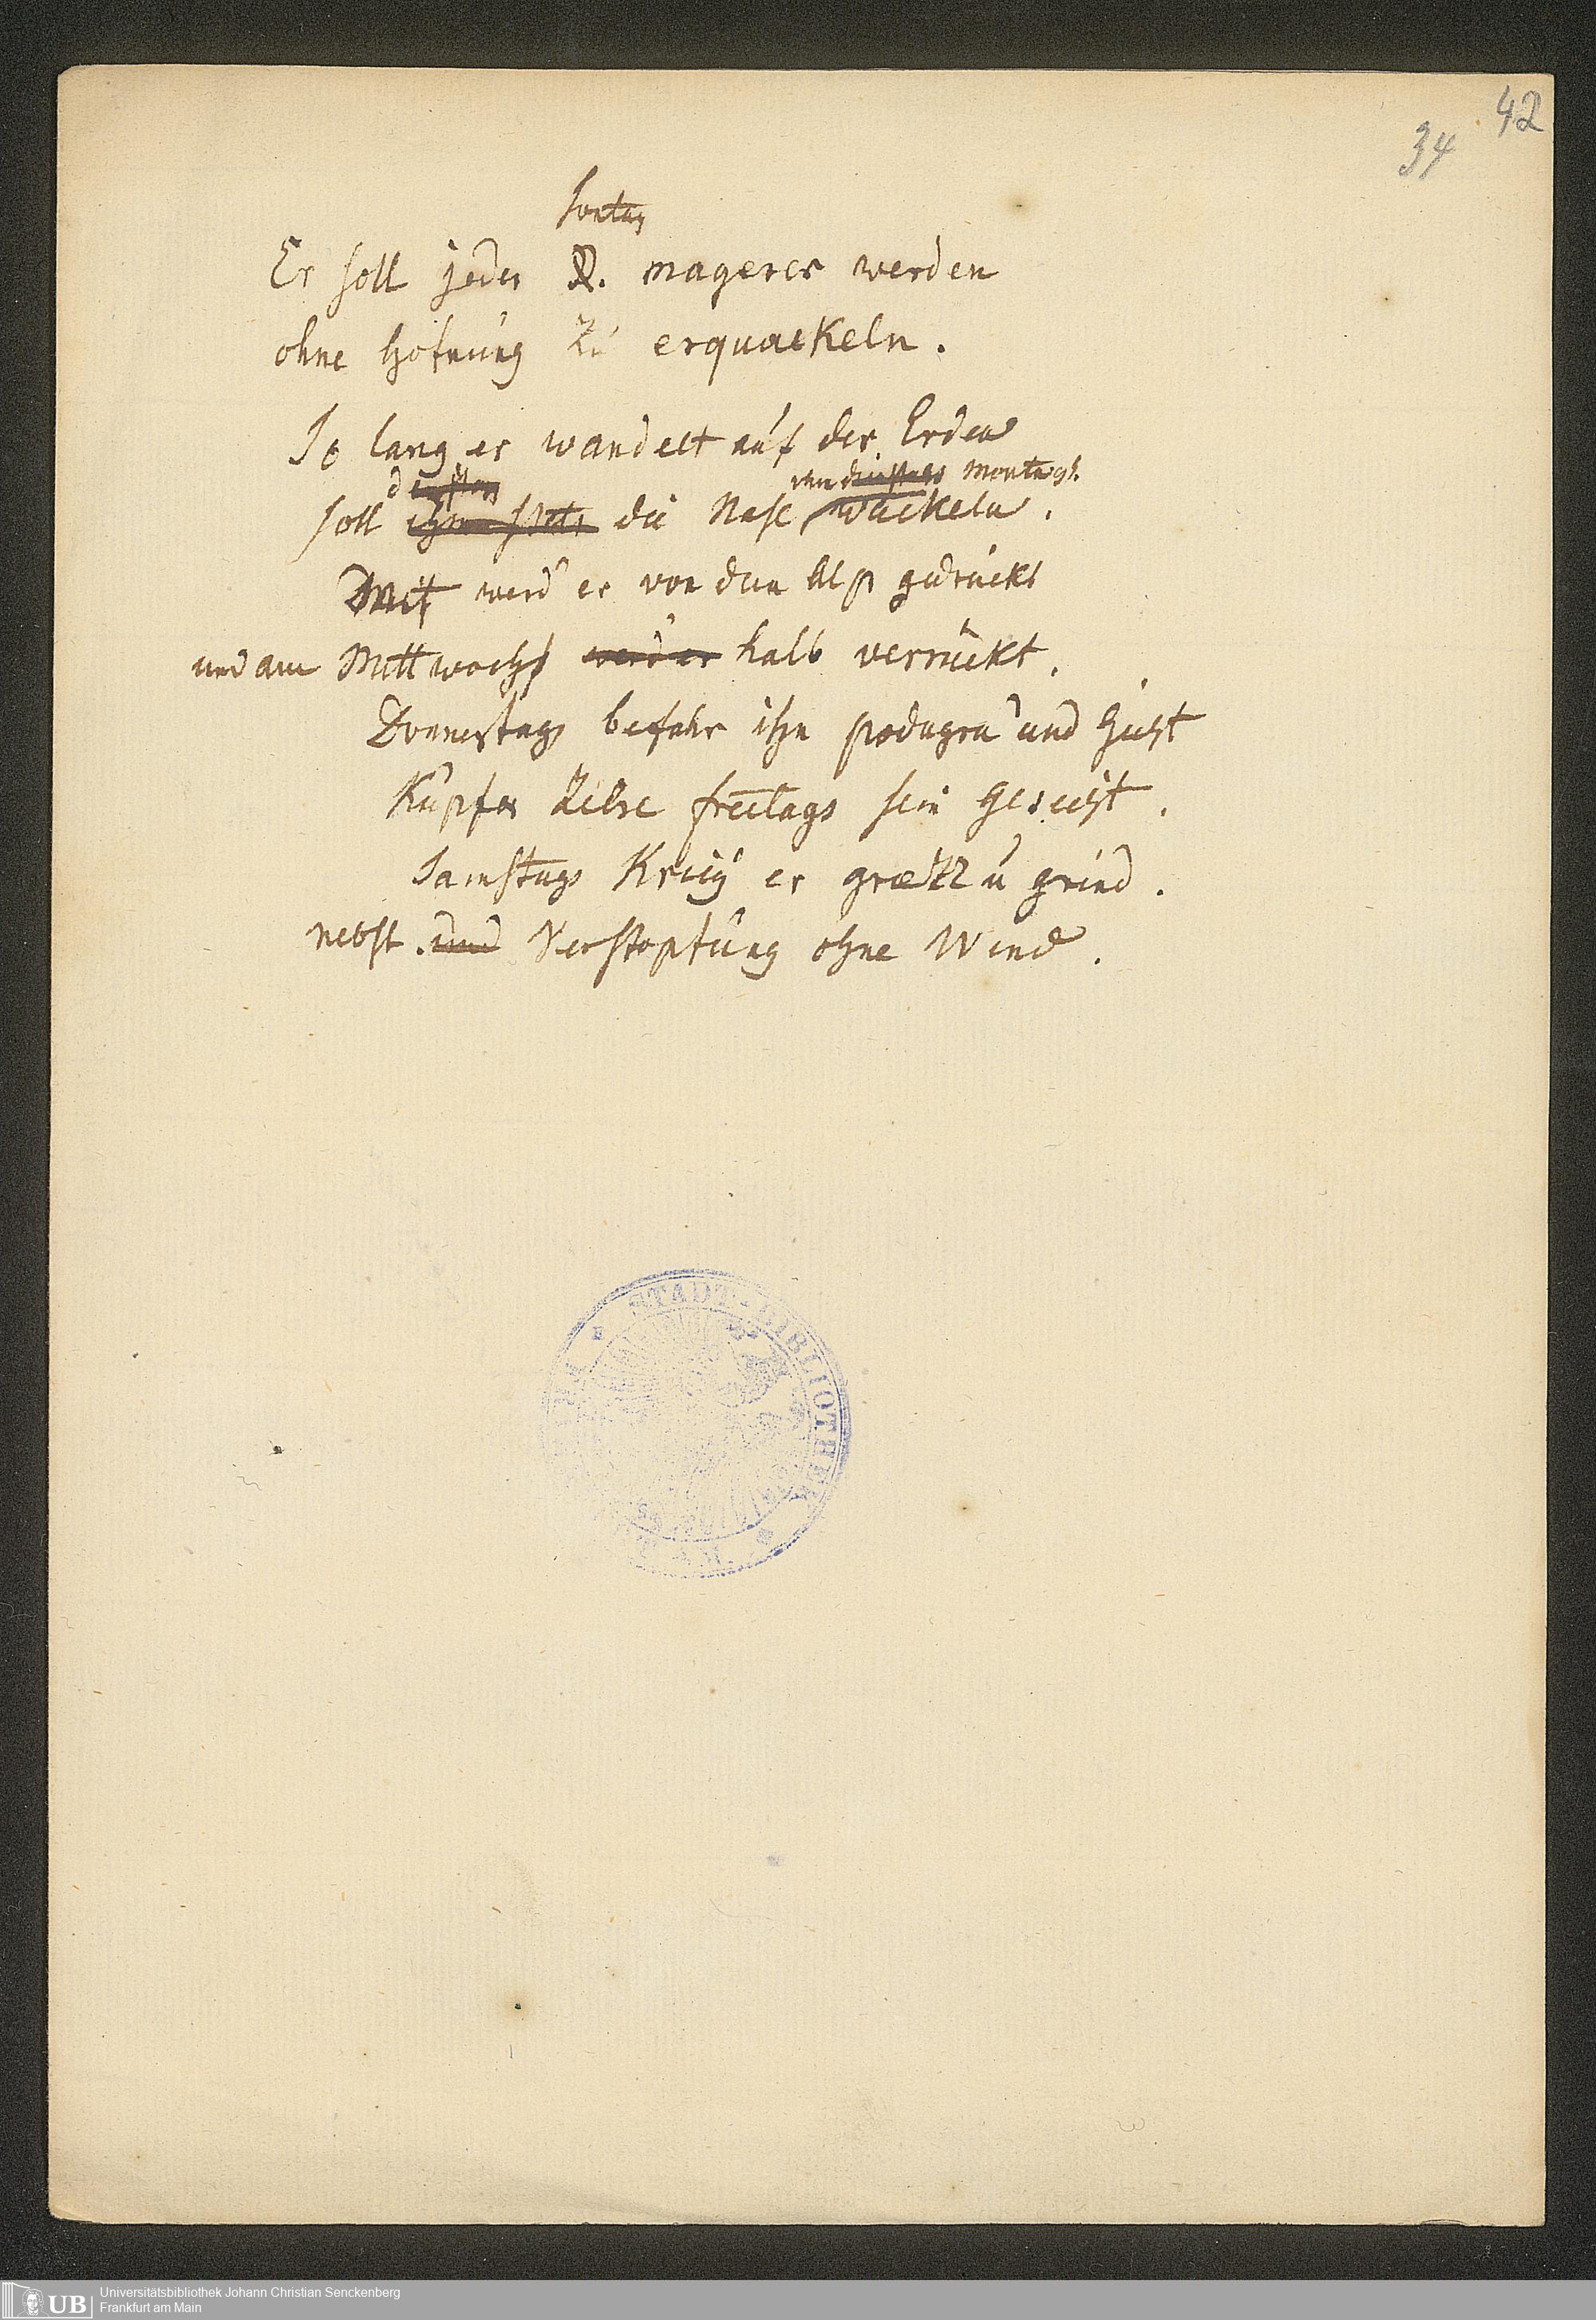 42
34
Sontag
Er soll jeder D. magerer werden
ohne Hofnung zu erquackeln.
So lang er wandelt auf der Erden
dienstag ihm dienstags Montags.
soll ihm stets die Nase wackeln.
werd er von dem Alp gedrückt
und am Mittwochs werd er halb verrückt.
Donnerstags befahr ihn podagra und Gicht
Kupfer ziere freitags sein Gesicht.
Samstags Krieg er graetz u grind.
nebst. und Verstopfung ohne Wind.
STADT-BIBLIOTHEK
UB
Universitätsbibliothek Johann Christian Senckenberg
Frankfurt am Main